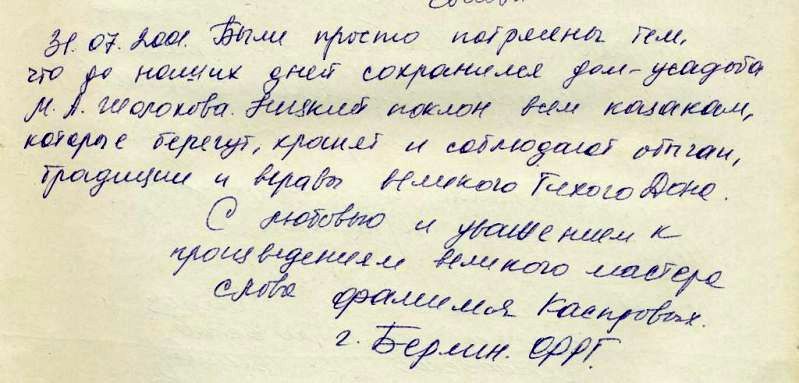 31.07.2001. Были просто потрясены тем,
что до наших дней сохранился дом-усадьба
М. А. Шолохова. Низкий поклон всем казакам,
которые берегут, хранят и соблюдают обычаи,
традиции и нравы великого Тихого Дона.
С любовью и уважением к
произведениям великого мастера
слова фамилия Каспровых.
г. Берлин. ФРГ.